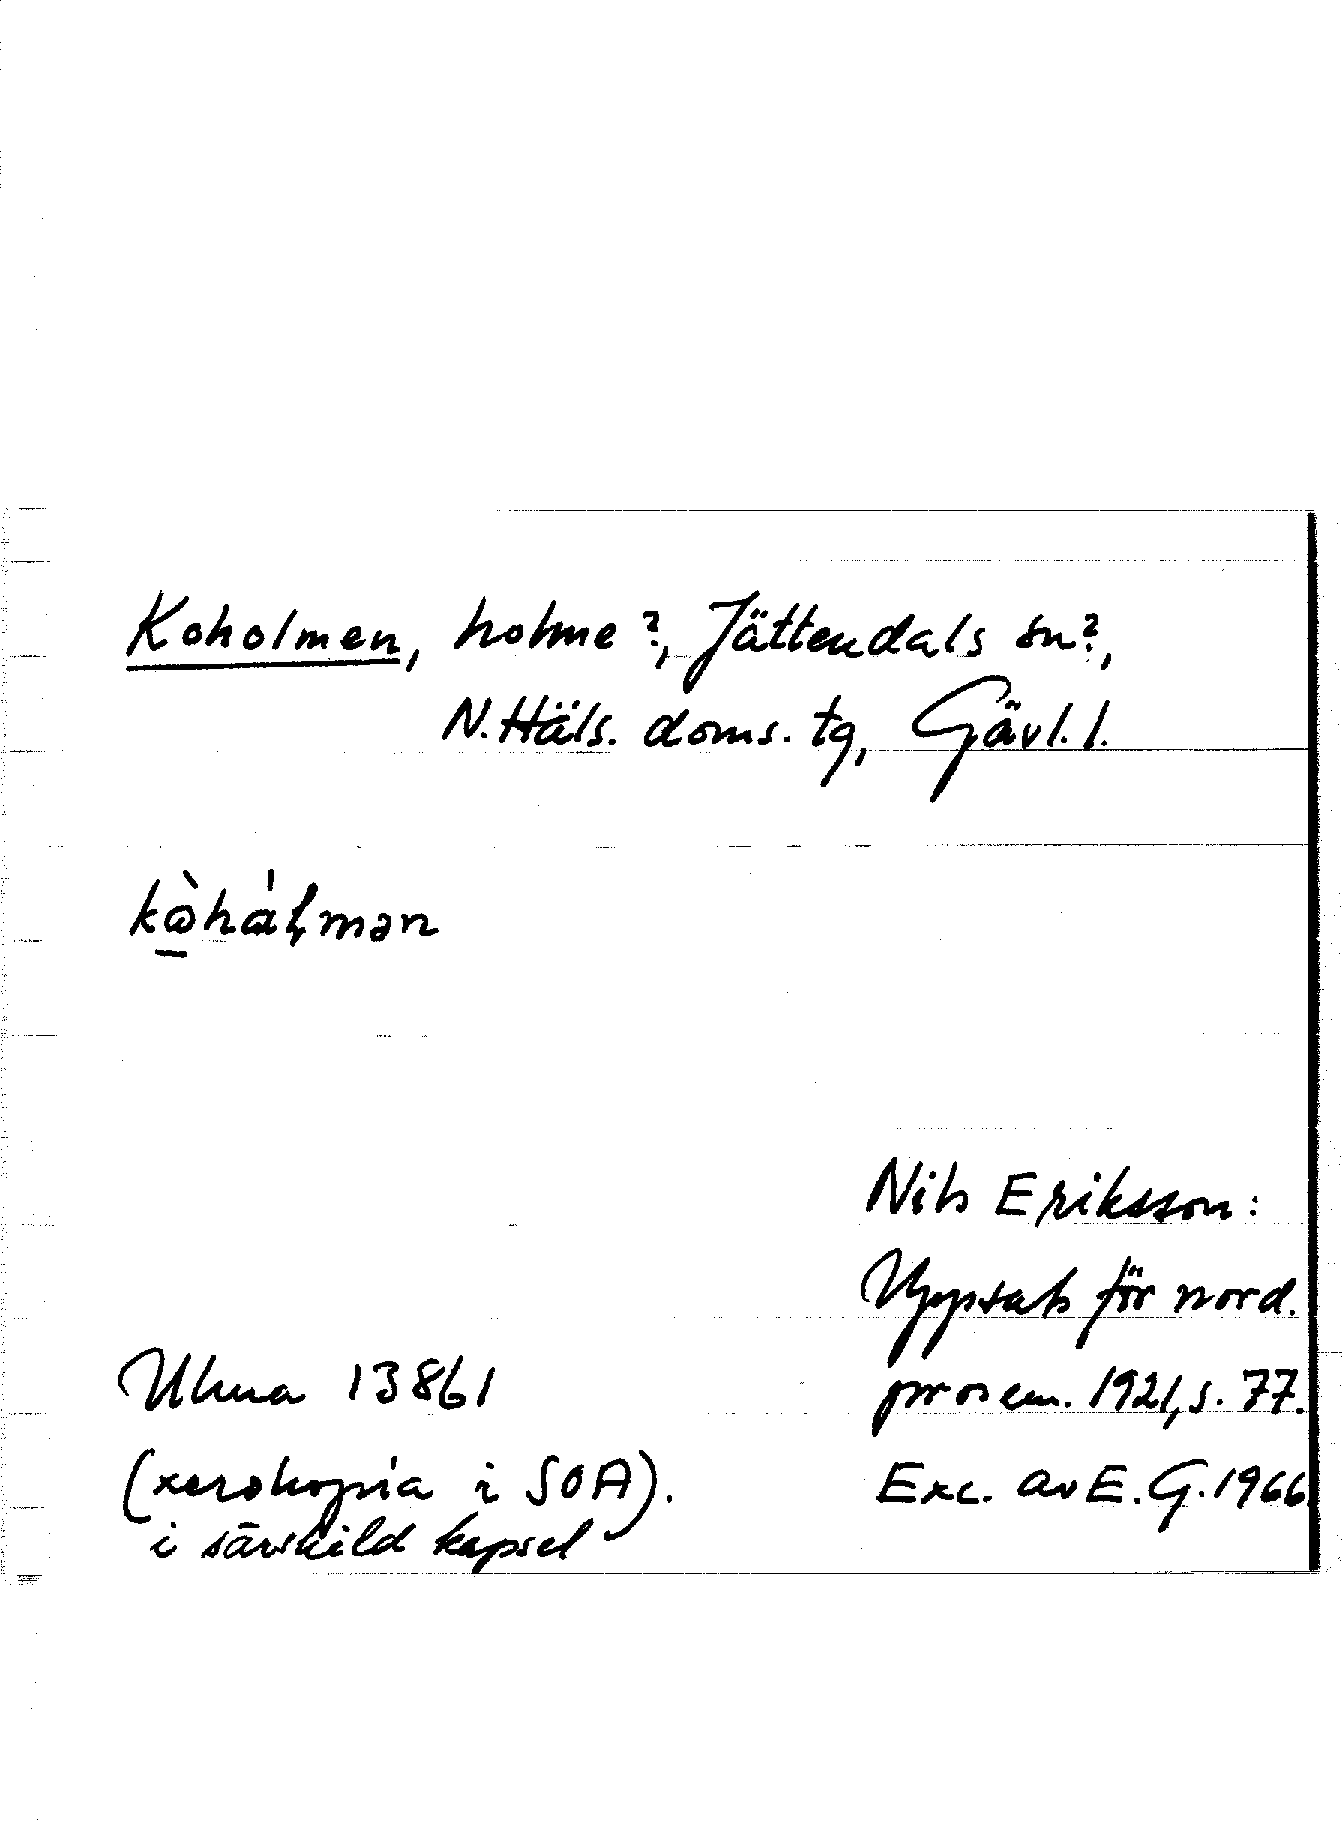 Koholmen, holme?, Jättendals sn?,
N. Häls. doms. tg, Gävl. l.
kὼhálmən
Nils Eriksson:
Uppsats för nord.
prosem. 1921, s. 77.
Ulma 13861
(xerokopia i SOA).
i särskild kapsel
Exc. av E. G. 1966